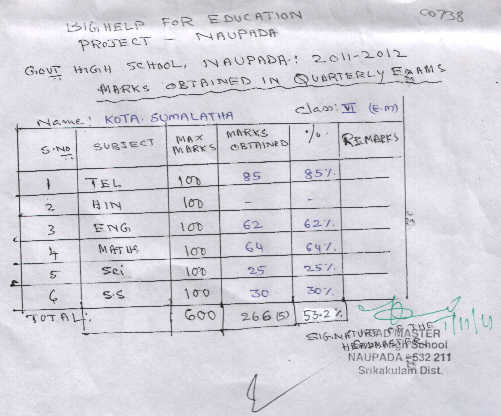 C0738
BIG HELP FOR EDUCATION
PROJECT - NAUPADA
GOVT HIGH SCHOOL, NAUPADA: 2011-2012
MARKS OBTAINED IN QUARTERLY EXAMS
Name: KOTA. SUMALATHA Class: VI (E.m)
S.NO SUBJECT MAX MARKS MARKS OBTAINED % REMARKS
1 TEL 100 85 85%
2 HIN 100 - -
3 ENG 100 62 62%
4 MATHS 100 64 64%
5 Sci 100 25 25%
6 S.S 100 30 30%
TOTAL: 600 266 (5) 53.2%
SIGNATURE OF THE
HEADMASTER
NAUPADA - 532 211
Srikakulam Dist.